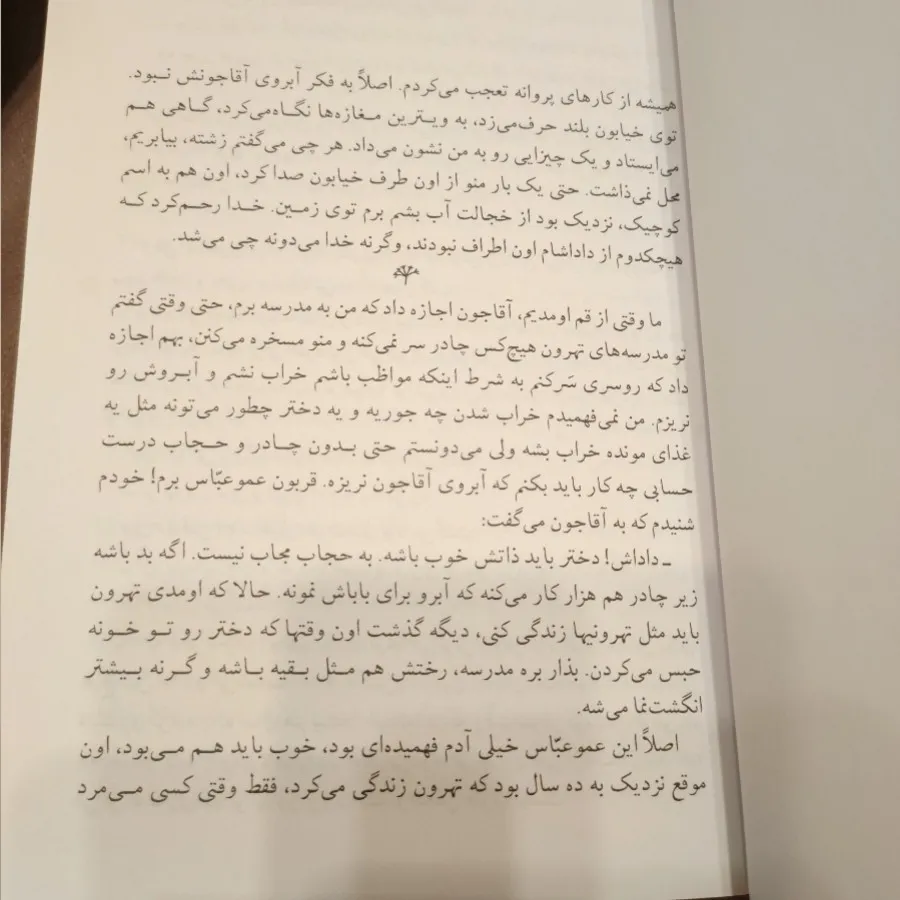 همیشه از کارهای پروانه تعجب می‌کردم. اصلاً به فکر آبروی آقاجونش نـبود.
توی خیابون بلند حرف‌می‌زد، به ویـترین مـغازه‌ها نگاه‌می‌کرد، گـاهی هـم
می‌ایستاد و یک چیزایی رو به من نشون می‌داد. هر چی می‌گفتم زشته، بیا بریم،
محل نمی‌ذاشت. حتی یک بار منو از اون طرف خیابون صدا کرد، اون هم به اسم
کوچیک، نزدیک بود از خجالت آب بشم برم توی زمـین. خـدا رحـم‌کرد کـه
هیچکدوم از داداشام اون اطراف نبودند، وگرنه خدا می‌دونه چی می‌شد.
ما وقتی از قم اومدیم، آقاجون اجازه داد که من به مدرسه برم، حتی وقتی گفتم
تو مدرسه‌های تهرون هیچ‌کس چادر سر نمی‌کنه و منو مسخره می‌کنن، بهم اجازه
داد که روسری سَرکنم به شرط اینکه مواظب باشم خراب نشم و آبـروش رو
نریزم. من نمی‌فهمیدم خراب شدن چه جوریه و یه دختر چطور می‌تونه مثل یه
غذای مونده خراب بشه ولی می‌دونستم حتی بـدون چـادر و حـجاب درست
حسابی چه کار باید بکنم که آبروی آقاجون نریزه. قربون عموعبّاس برم! خودم
شنیدم که به آقاجون می‌گفت:
ـ داداش! دختر باید ذاتش خوب باشه. به حجاب مجاب نیست. اگه بد باشه
زیر چادر هم هزار کار می‌کنه که آبرو برای باباش نمونه. حالا که اومدی تهرون
باید مثل تهرونیها زندگی کنی، دیگه گذشت اون وقتها که دختر رو تـو خـونه
حبس می‌کردن. بذار بره مدرسه، رختش هم مـثل بـقیه بـاشه و گـرنه بـیشتر
انگشت‌نما می‌شه.
اصلاً این عموعبّاس خیلی آدم فهمیده‌ای بود، خوب باید هـم مـی‌بود، اون
موقع نزدیک به ده سال بود که تهرون زندگی می‌کرد، فقط وقتی کسی مـی‌مرد